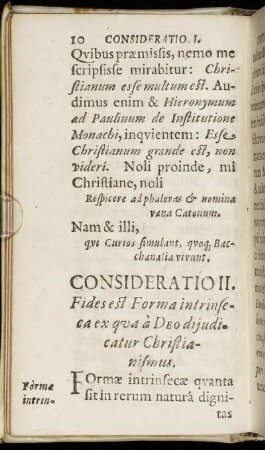 10 CONSIDERATIO. I.
Qvibus præmissis, nemo me
scripsisse mirabitur: Chri-
stianum esse multum est. Au-
dimus enim & Hieronymum
ad Paulinum de Institutione
Monachi, inqvientem: Esse
Christianum grande est, non
videri. Noli proinde, mi
Christiane, noli
Respicere ad phaleras & nomina
vana Catonum.
Nam & illi,
qvi Curios simulant, qvoq; Bac-
chanalia vivunt.
CONSIDERATIO II.
Fides est Forma intrinse-
ca ex qva à DEO dijudi-
catur Christia-
nismus.
Formæ
intrin-
FOrmæ intrinsecæ qvanta
sit in rerum naturâ digni-
tas